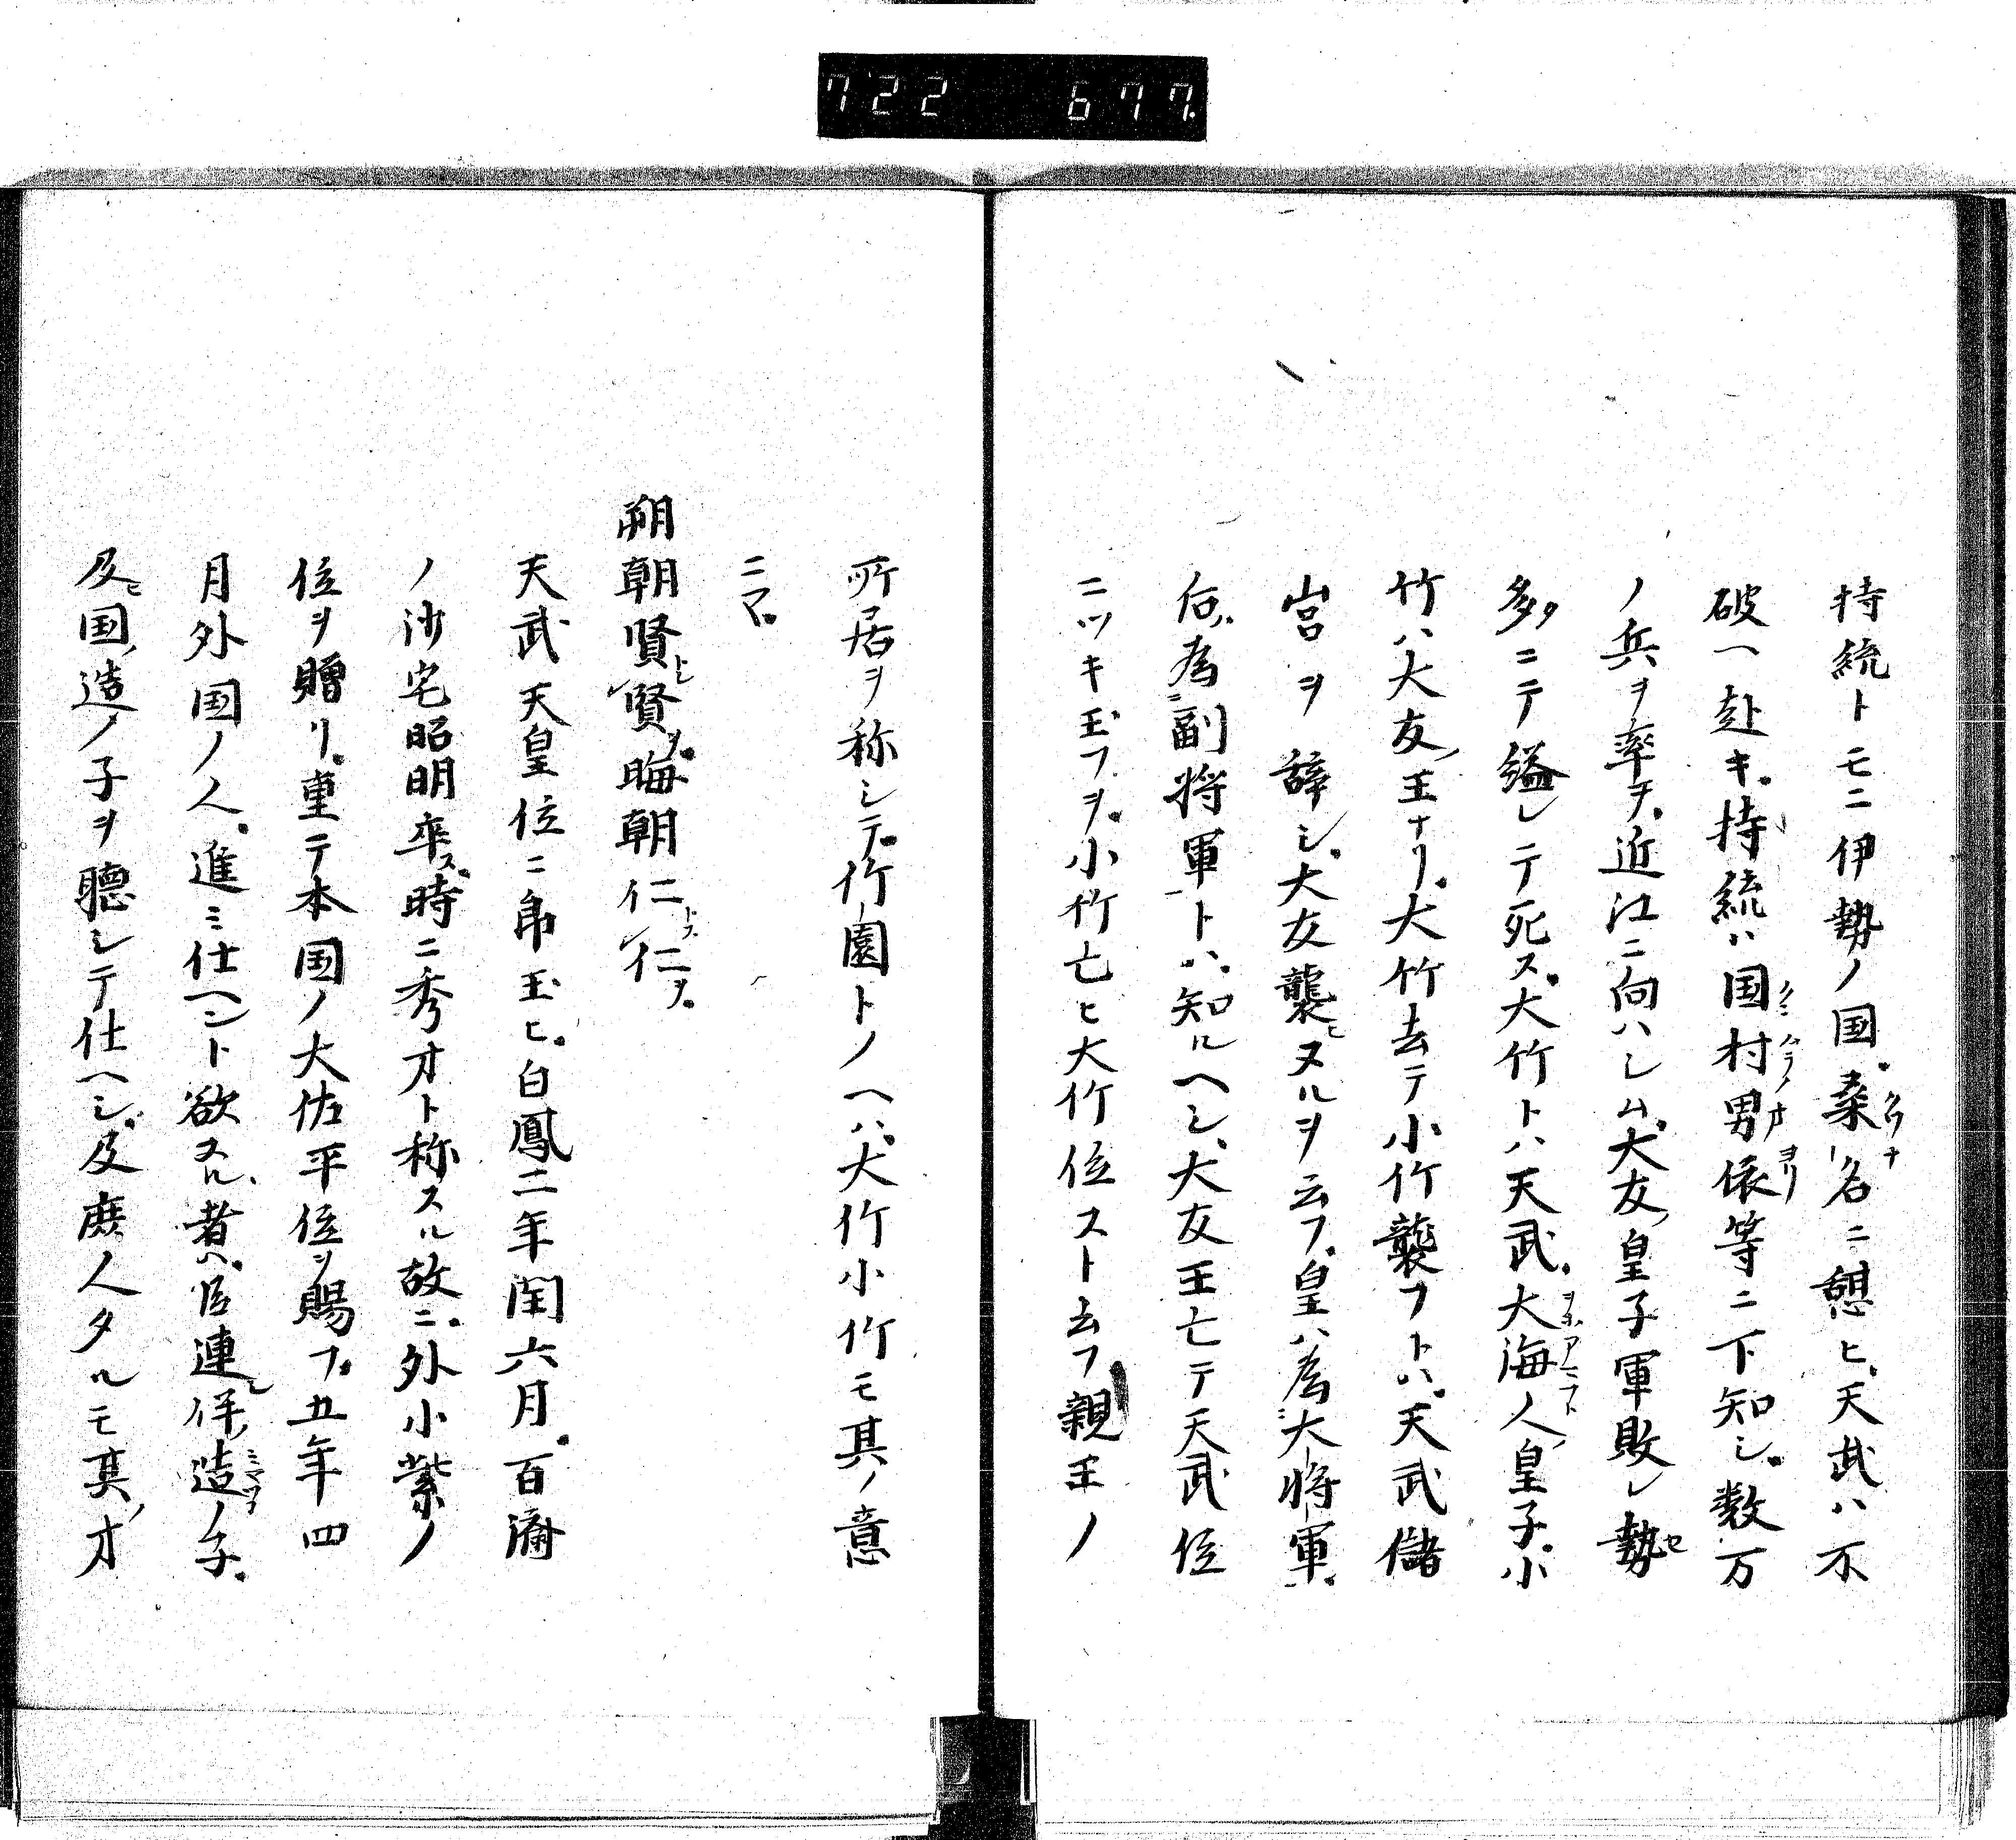 722 677
持統トモニ伊勢ノ国。桑名ニ憩ヒ、天武ハ不
破ヘ赴キ。持統ハ国村男依等ニ下知シ。数万
ノ兵ヲ率テ。近江ニ向ハシム。大友皇子軍敗レ勢
多ニテ縊レテ死ス。大竹トハ天武。大海人皇子。小
竹ハ大友王ナリ。大竹去テ小竹襲フトハ。天武儲
宮ヲ辞シ。大友襲ヒヌルヲ云フ。皇ハ為大将軍。
后為副将軍トハ。知ルヘシ、大友王亡テ天武位
ニツキ玉フヲ。小竹亡ヒ大竹位ストムフ親王ノ
所居ヲ称シテ。竹園トノヘハ。大竹小竹モ其ノ意
ニヤ。
朔朝賢賢ヲ。晦朝仁仁ヲ。
天武天皇位ニ即玉ヒ。白鳳二年閏六月。百済
ノ沙宅昭明卒ス。時ニ秀才ト称スル故ニ。外小紫ノ
位ヲ贈リ。重テ本国ノ大佐平位ヲ賜フ。五年四
月外国ノ人。進ミ仕ヘント欲スル者ハ。臣連伴造ノ子。
及ヒ国造ノ子ヲ聴シテ仕ヘシ。及庶人タルモ其才